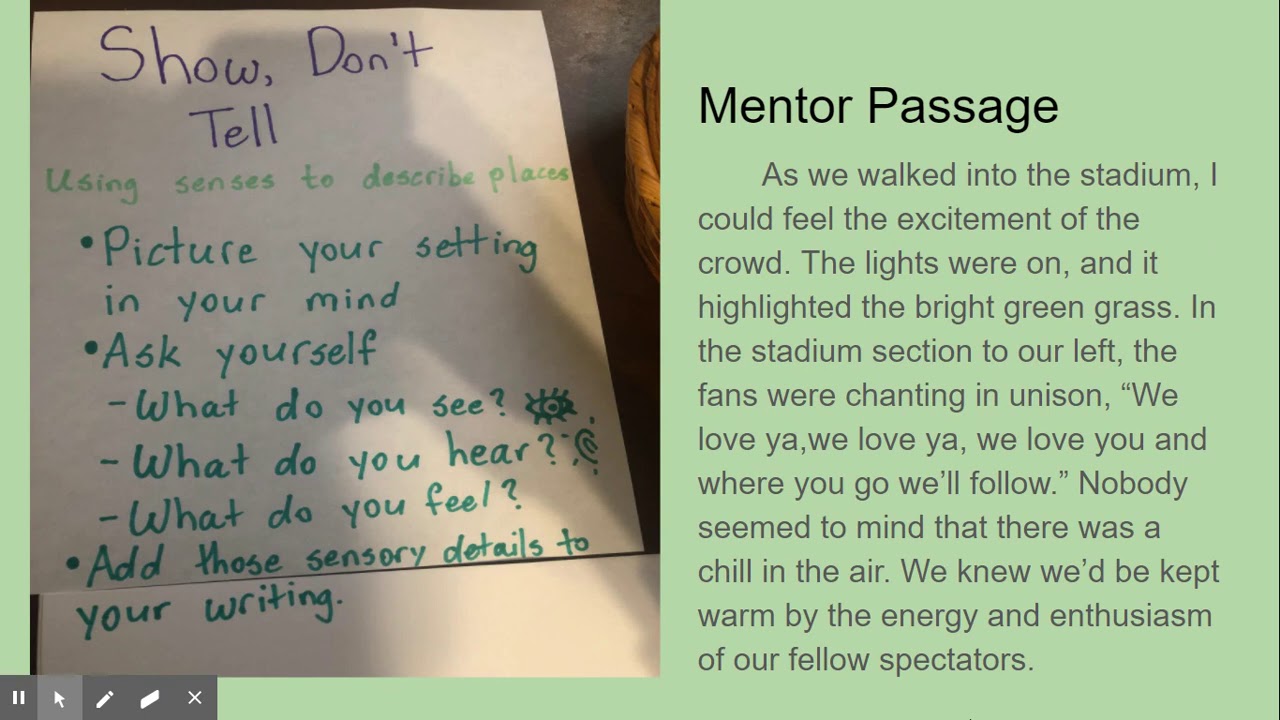 Show, Don't
Tell
Using senses to describe places
•Picture your setting
in your mind
•Ask yourself
-What do you see?
-What do you hear?
-What do you feel?
•Add those sensory details to
your writing.
Mentor Passage
As we walked into the stadium, I
could feel the excitement of the
crowd. The lights were on, and it
highlighted the bright green grass. In
the stadium section to our left, the
fans were chanting in unison, “We
love ya,we love ya, we love you and
where you go we’ll follow.” Nobody
seemed to mind that there was a
chill in the air. We knew we’d be kept
warm by the energy and enthusiasm
of our fellow spectators.